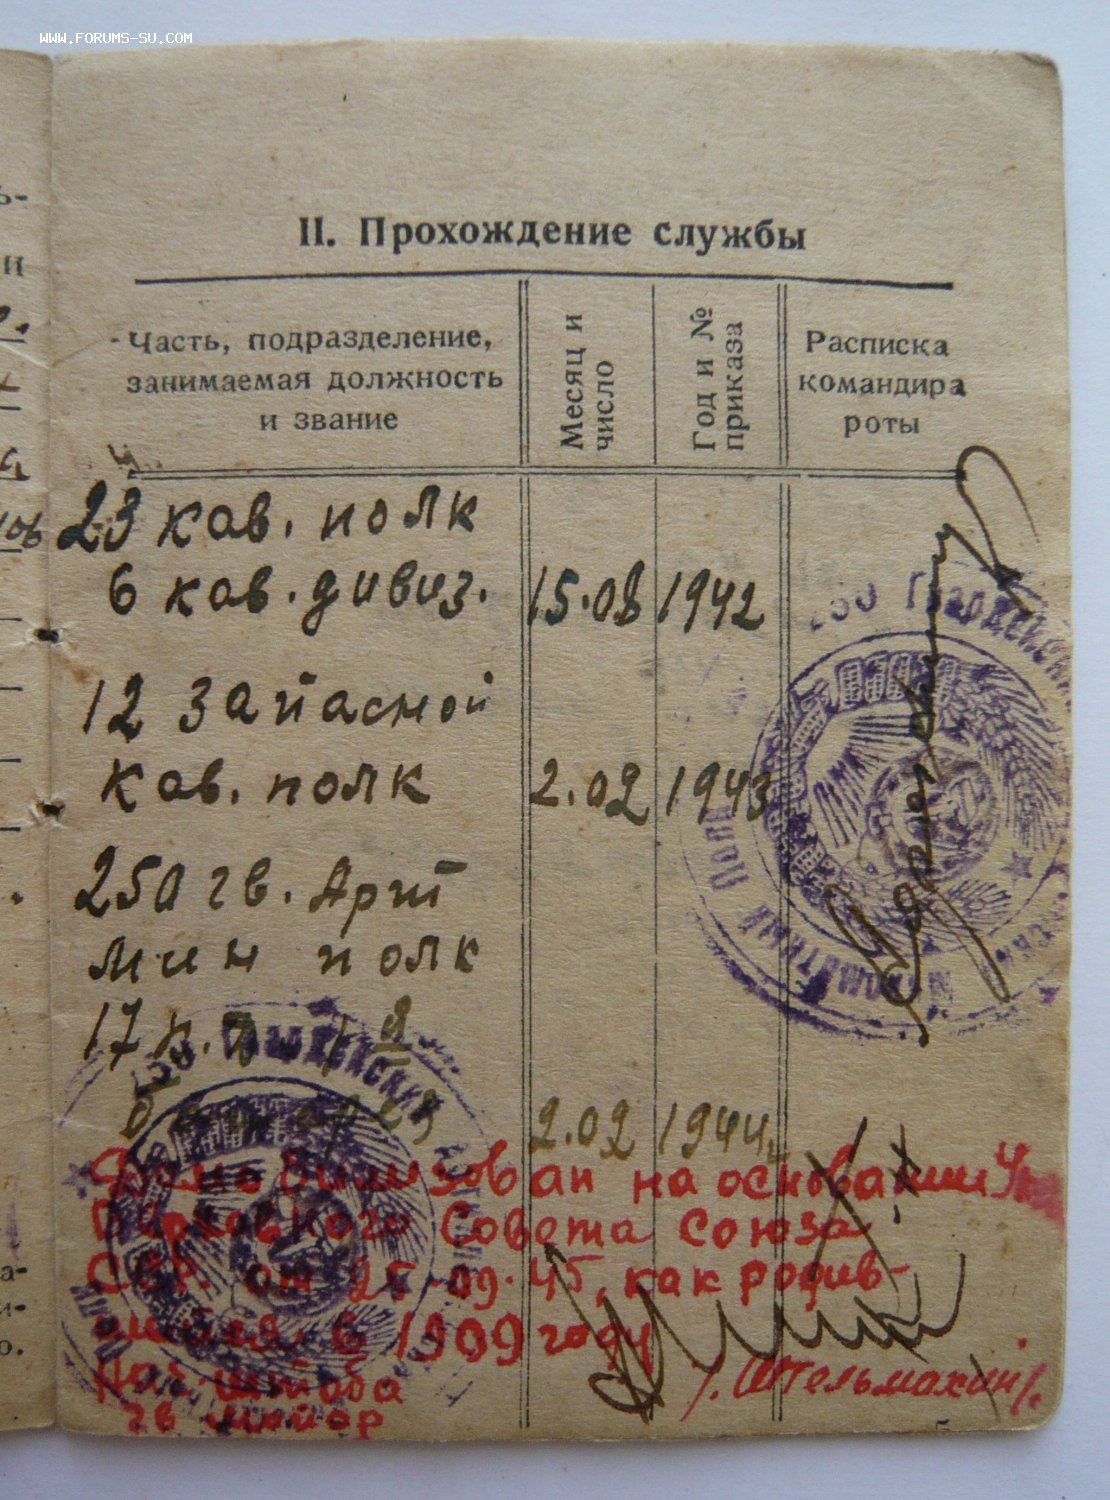 WWW.FORUMS-SU.COM
II. Прохождение службы
Часть, подразделение,
занимаемая должность
и звание
Месяц и
число
Год и №
приказа
Расписка
командира
роты
23 кав. полк
6 кав. дивиз. 15.08 1942
12 запасной
кав. полк 2.02 1943
250 гв. Арт
мин полк
17
2.02 1944
Демобилизован на основании Указ
Верховного Совета Союза
ССР от 25.09.45, как родив-
шийся в 1909 году
Нач штаба
гв майор
/Штельмахин/.
250 Гвардейский
Минометный
Полк
5